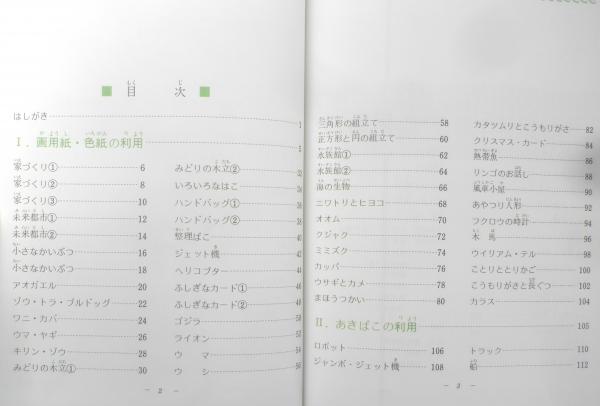 ■ 目次 ■
はしがき 1
Ⅰ. 画用紙・色紙の利用 5
家づくり① 6
家づくり② 8
家づくり③ 10
未来都市① 12
未来都市② 14
小さなかいぶつ 16
小さなかいぶつ 18
アオガエル 20
ゾウ・トラ・ブルドッグ 22
ワニ・カバ 24
ウマ・ヤギ 26
キリン・ゾウ 28
みどりの木立① 30
みどりの木立② 32
いろいろなはこ 34
ハンドバッグ① 36
ハンドバッグ② 38
整理ばこ 40
ジェット機 42
ヘリコプタ 44
ふしぎなカード① 46
ふしぎなカード② 48
ゴジラ 50
ライオン 52
ウマ 54
ウシ 56
− 2 −
三角形の組立て 58
正方形と円の組立て 60
水族館① 62
水族館② 64
海の生物 66
ニワトリとヒヨコ 68
オオム 70
クジャク 72
ミミズク 74
カッパ 76
ウサギとカメ 78
まほうつかい 80
カタツムリとこうもりがさ 82
クリスマス・カード 84
熱帯魚 86
リンゴのお話し 88
風車小屋 90
あやつり人形 92
フクロウの時計 94
木馬 96
ウイリアム・テル 98
ことりととりかご 100
こうもりがさと長ぐつ 102
カラス 104
Ⅱ. あきばこの利用 105
ロボット 106
ジャンボ・ジェット機 108
トラック 110
船 112
− 3 −